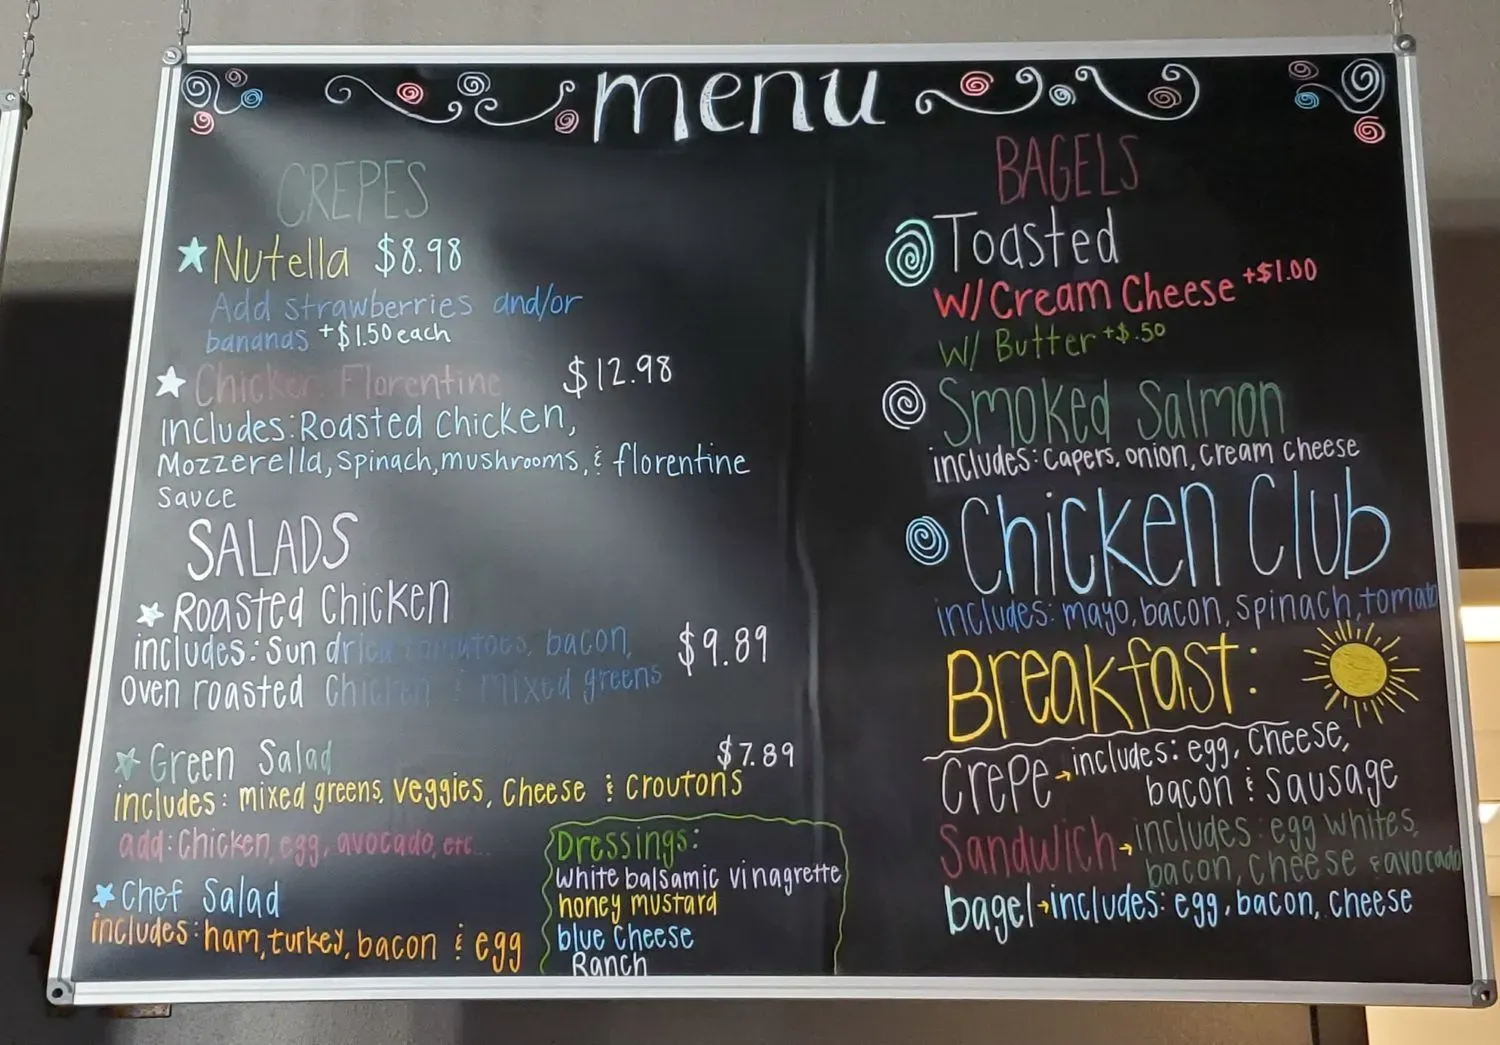 menu
CREPES
Nutella $8.98
Add strawberries and/or
bananas +$1.50 each
Chicken Florentine $12.98
includes: Roasted Chicken,
Mozzerella, spinach, mushrooms, & florentine
sauce
SALADS
Roasted Chicken
includes: Sun dried tomatoes, bacon, $9.89
oven roasted Chicken & mixed greens
Green Salad $7.89
includes: mixed greens, veggies, cheese & croutons
add: chicken, egg, avocado, etc...
Chef Salad
includes: ham, turkey, bacon & egg
Dressings:
white balsamic vinagrette
honey mustard
blue cheese
Ranch
BAGELS
Toasted
W/ Cream Cheese +$1.00
W/ Butter +$.50
Smoked Salmon
includes: capers, onion, cream cheese
Chicken Club
includes: mayo, bacon, spinach, tomato
Breakfast:
Crepe → includes: egg, cheese,
bacon & sausage
Sandwich → includes: egg whites,
bacon, cheese & avocado
bagel → includes: egg, bacon, cheese